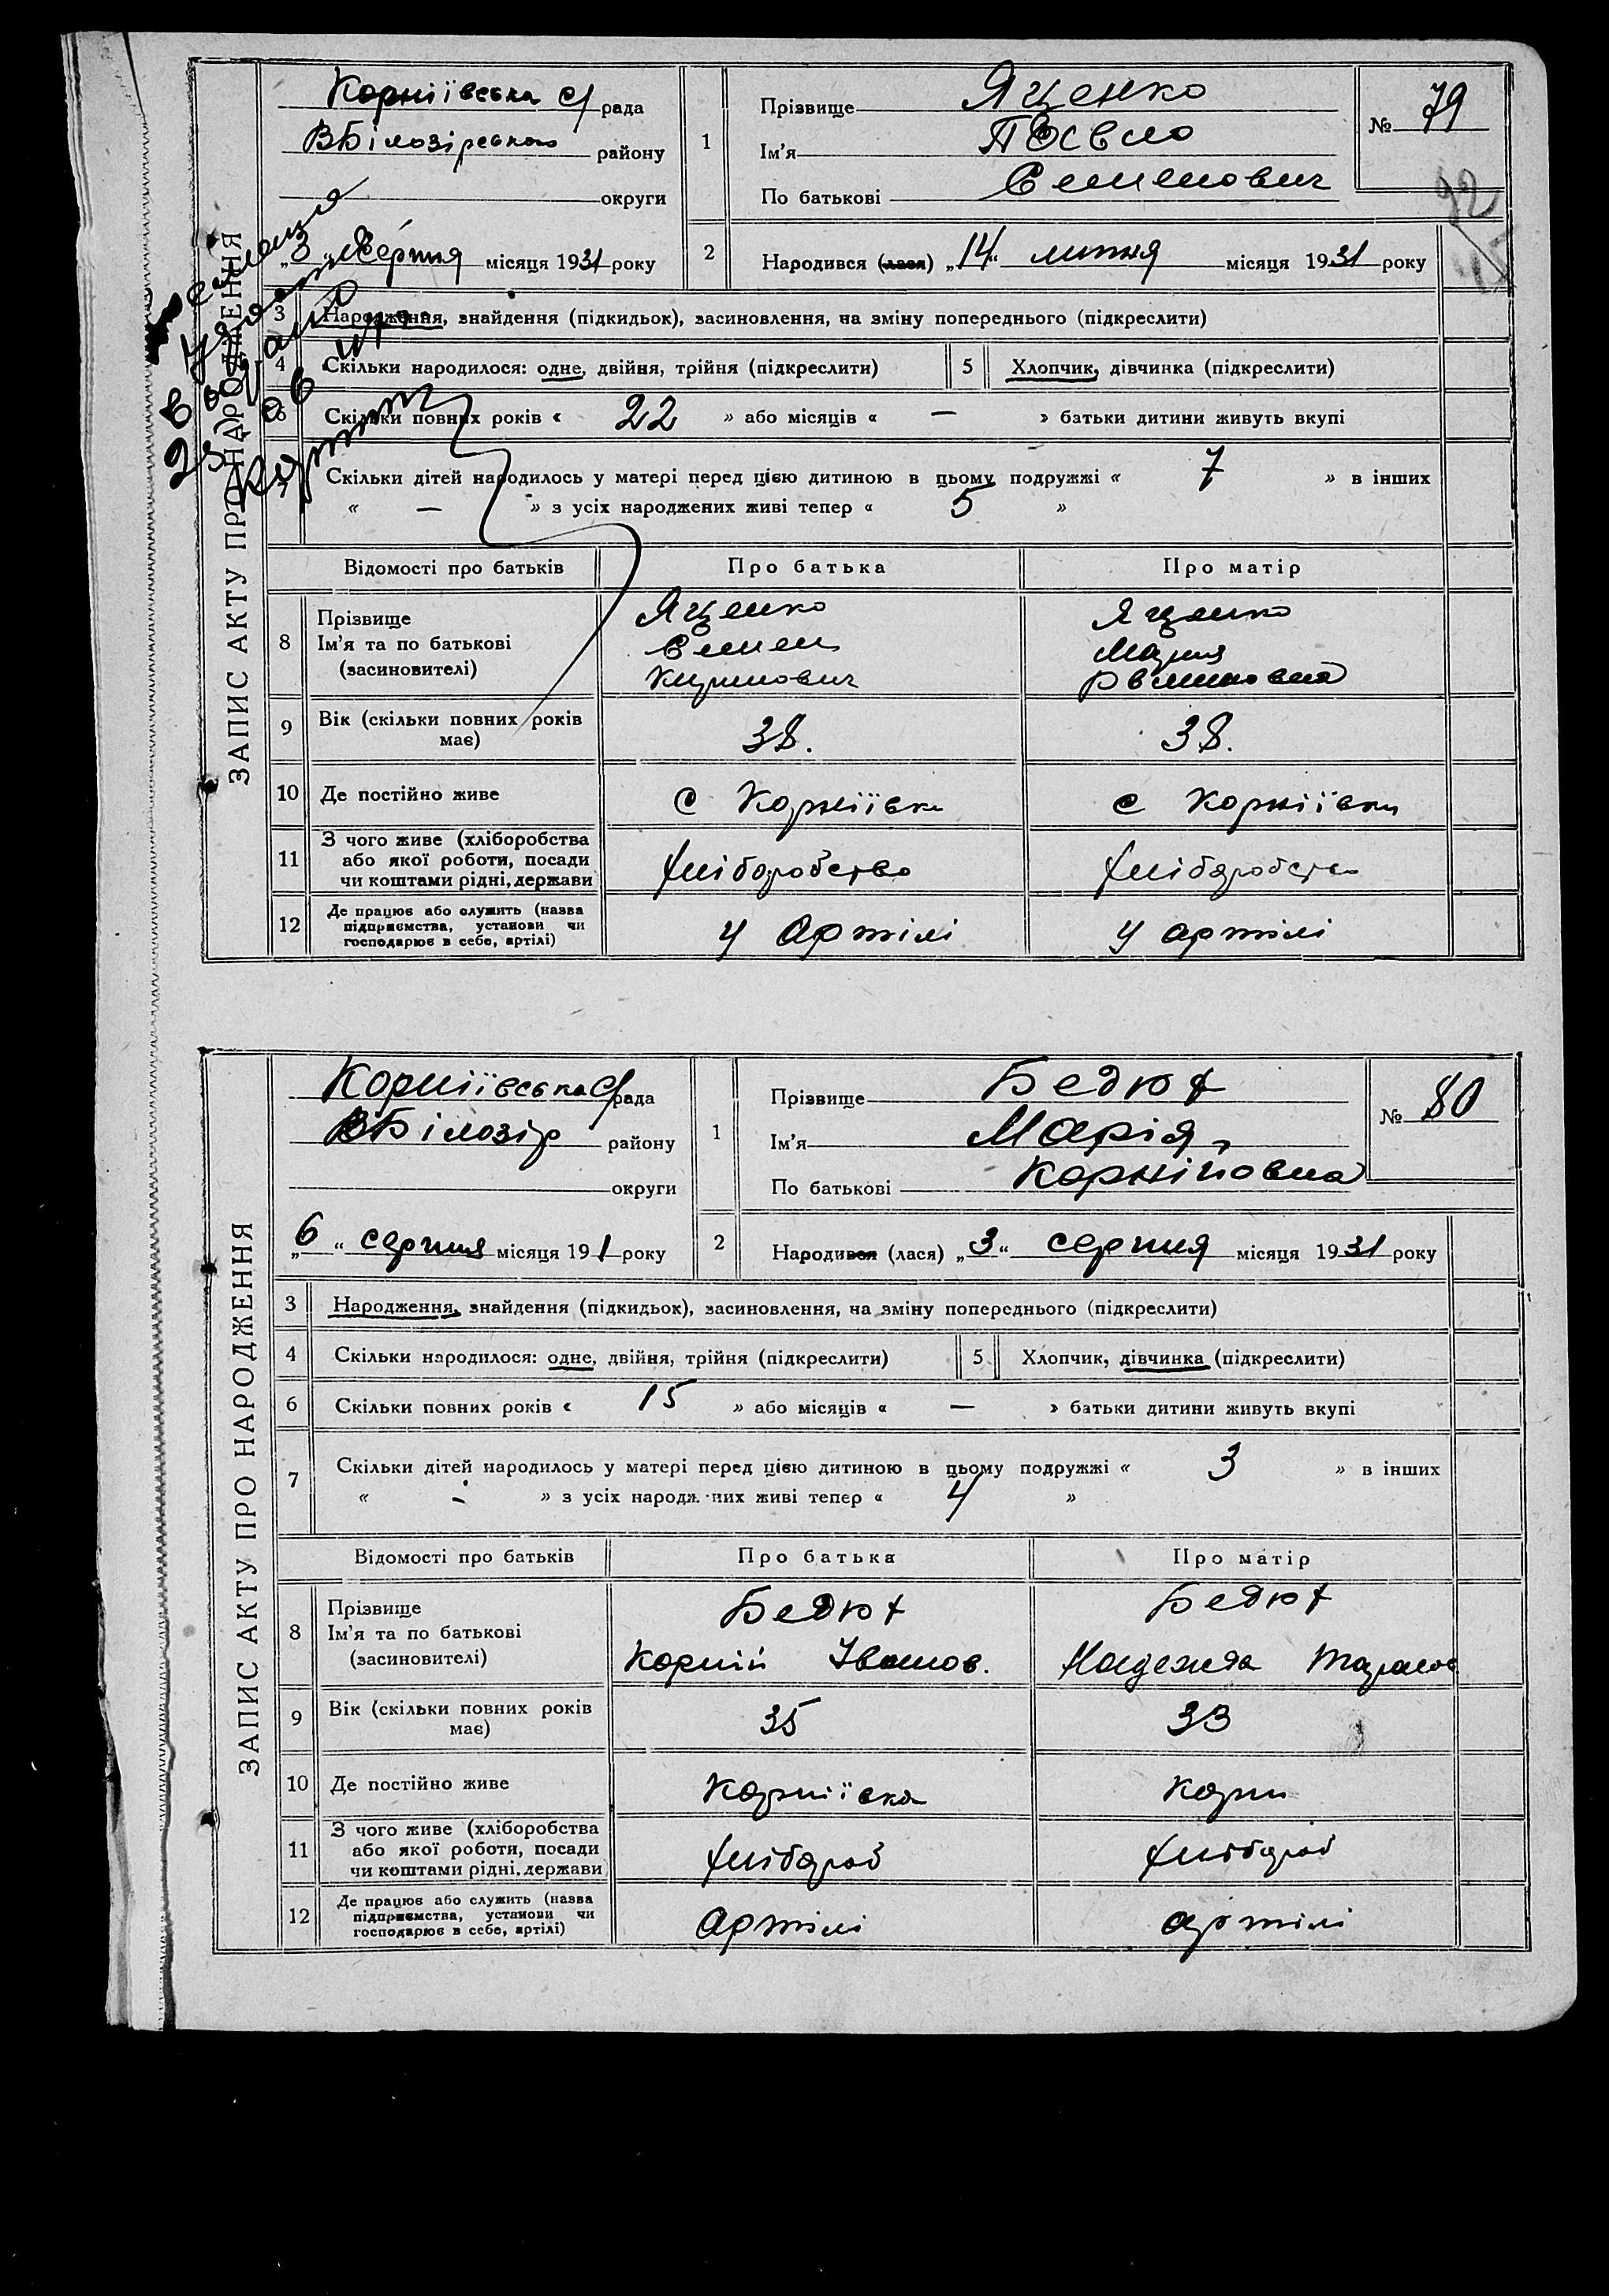 ЗАПИС АКТУ ПРО НАРОДЖЕННЯ
Корніївська с/рада
ВБілозірського району
округи
"3" Серпня місяця 1931 року
1
Прізвище Яценко
Ім'я Павло
По батькові Семенович
№ 79
92
2
Народився (лася) "14" липня місяця 1931 року
3 Народження, знайдення (підкидьок), засиновлення, на зміну попереднього (підкреслити)
4 Скільки народилося: одне, двійня, трійня (підкреслити) 5 Хлопчик, дівчинка (підкреслити)
6 Скільки повних років « 22 » або місяців « — » батьки дитини живуть вкупі
7 Скільки дітей народилось у матері перед цією дитиною в цьому подружжі « 7 » в інших
« — » з усіх народжених живі тепер « 5 »
Відомості про батьків Про батька Про матір
8
Прізвище Яценко Яценко
Ім'я та по батькові Семен Мария
(засиновителі)
9 Вік (скільки повних років має) 38. 38.
10 Де постійно живе с Корніївки с Корніївки
11 З чого живе (хліборобства або якої роботи, посади чи коштами рідні, держави хліборобство хліборобство
12 Де працює або служить (назва підприємства, установи чи господарює в себе, артілі) у Артілі у артілі
ЗАПИС АКТУ ПРО НАРОДЖЕННЯ
Корніївська с/рада
ВБілозір району
округи
"6" серпня місяця 191 року
1
Прізвище Бедюх
Ім'я Марія
По батькові Корніповна
№ 80
2
Народився (лася) "3" серпня місяця 1931 року
3 Народження, знайдення (підкидьок), засиновлення, на зміну попереднього (підкреслити)
4 Скільки народилося: одне, двійня, трійня (підкреслити) 5 Хлопчик, дівчинка (підкреслити)
6 Скільки повних років « 15 » або місяців « — » батьки дитини живуть вкупі
7 Скільки дітей народилось у матері перед цією дитиною в цьому подружжі « 3 » в інших
« - » з усіх народжених живі тепер « 4 »
Відомості про батьків Про батька Про матір
8
Прізвище Бедюх Бедюх
Ім'я та по батькові Корній Іванов. Надежда Тарасов
(засиновителі)
9 Вік (скільки повних років має) 35 33
10 Де постійно живе Корніївка Корни
11 З чого живе (хліборобства або якої роботи, посади чи коштами рідні, держави хлібороб хлібороб
12 Де працює або служить (назва підприємства, установи чи господарює в себе, артілі) Артілі артілі